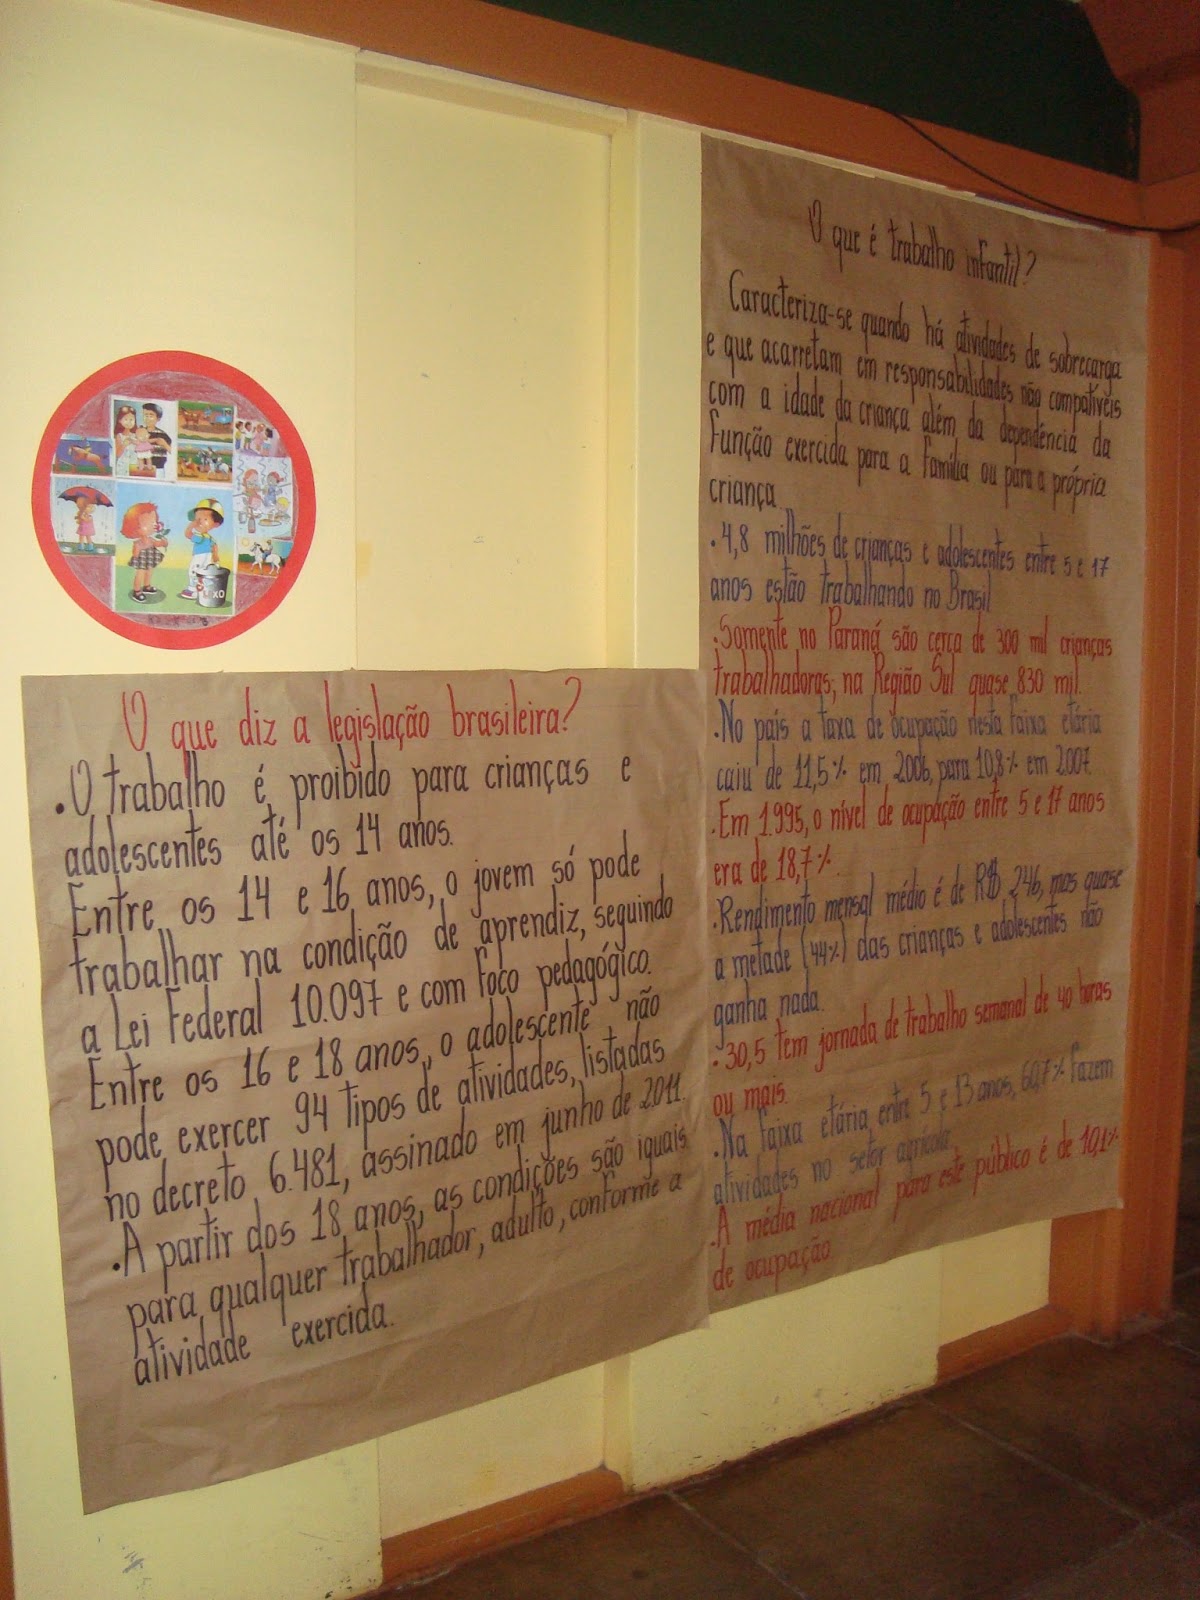 O que é trabalho infantil?
Caracteriza-se quando há atividades de sobrecarga
e que acarretam em responsabilidades não compatíveis
com a idade da criança além da dependência da
função exercida para a família ou para a própria
criança.
. 4,8 milhões de crianças e adolescentes entre 5 e 17
anos estão trabalhando no Brasil
. Somente no Paraná são cerca de 300 mil crianças
trabalhadoras; na Região Sul quase 830 mil.
. No país a taxa de ocupação nesta faixa etária
caiu de 11,5% em 2006, para 10,8% em 2007.
. Em 1.995, o nível de ocupação entre 5 e 17 anos
era de 18,7%.
. Rendimento mensal médio é de R$ 246, mas quase
a metade (44%) das crianças e adolescentes não
ganha nada.
. 30,5 tem jornada de trabalho semanal de 40 horas
ou mais.
. Na faixa etária entre 5 e 13 anos, 60,7% fazem
atividades no setor agrícola.
. A média nacional para este público é de 10,1%
de ocupação.
O que diz a legislação brasileira?
. O trabalho é proibido para crianças e
adolescentes até os 14 anos.
Entre os 14 e 16 anos, o jovem só pode
trabalhar na condição de aprendiz, seguindo
a Lei Federal 10.097 e com foco pedagógico.
Entre os 16 e 18 anos, o adolescente não
pode exercer 94 tipos de atividades, listadas
no decreto 6.481, assinado em junho de 2011.
. A partir dos 18 anos, as condições são iguais
para qualquer trabalhador, adulto, conforme a
atividade exercida.